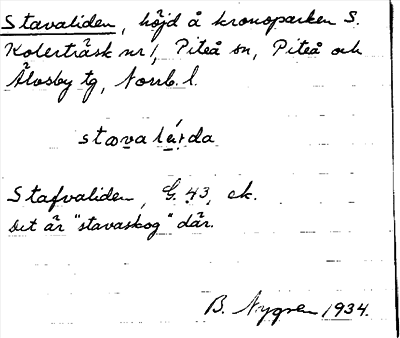 Stavaliden, höjd å kronoparken S.
Kolerträsk nr 1, Piteå sn, Piteå och
Älvsby tg, Norrb. l.
Stafvaliden, G. 43, ek.
Det är "stavaskog" där.
B. Nygren 1934.